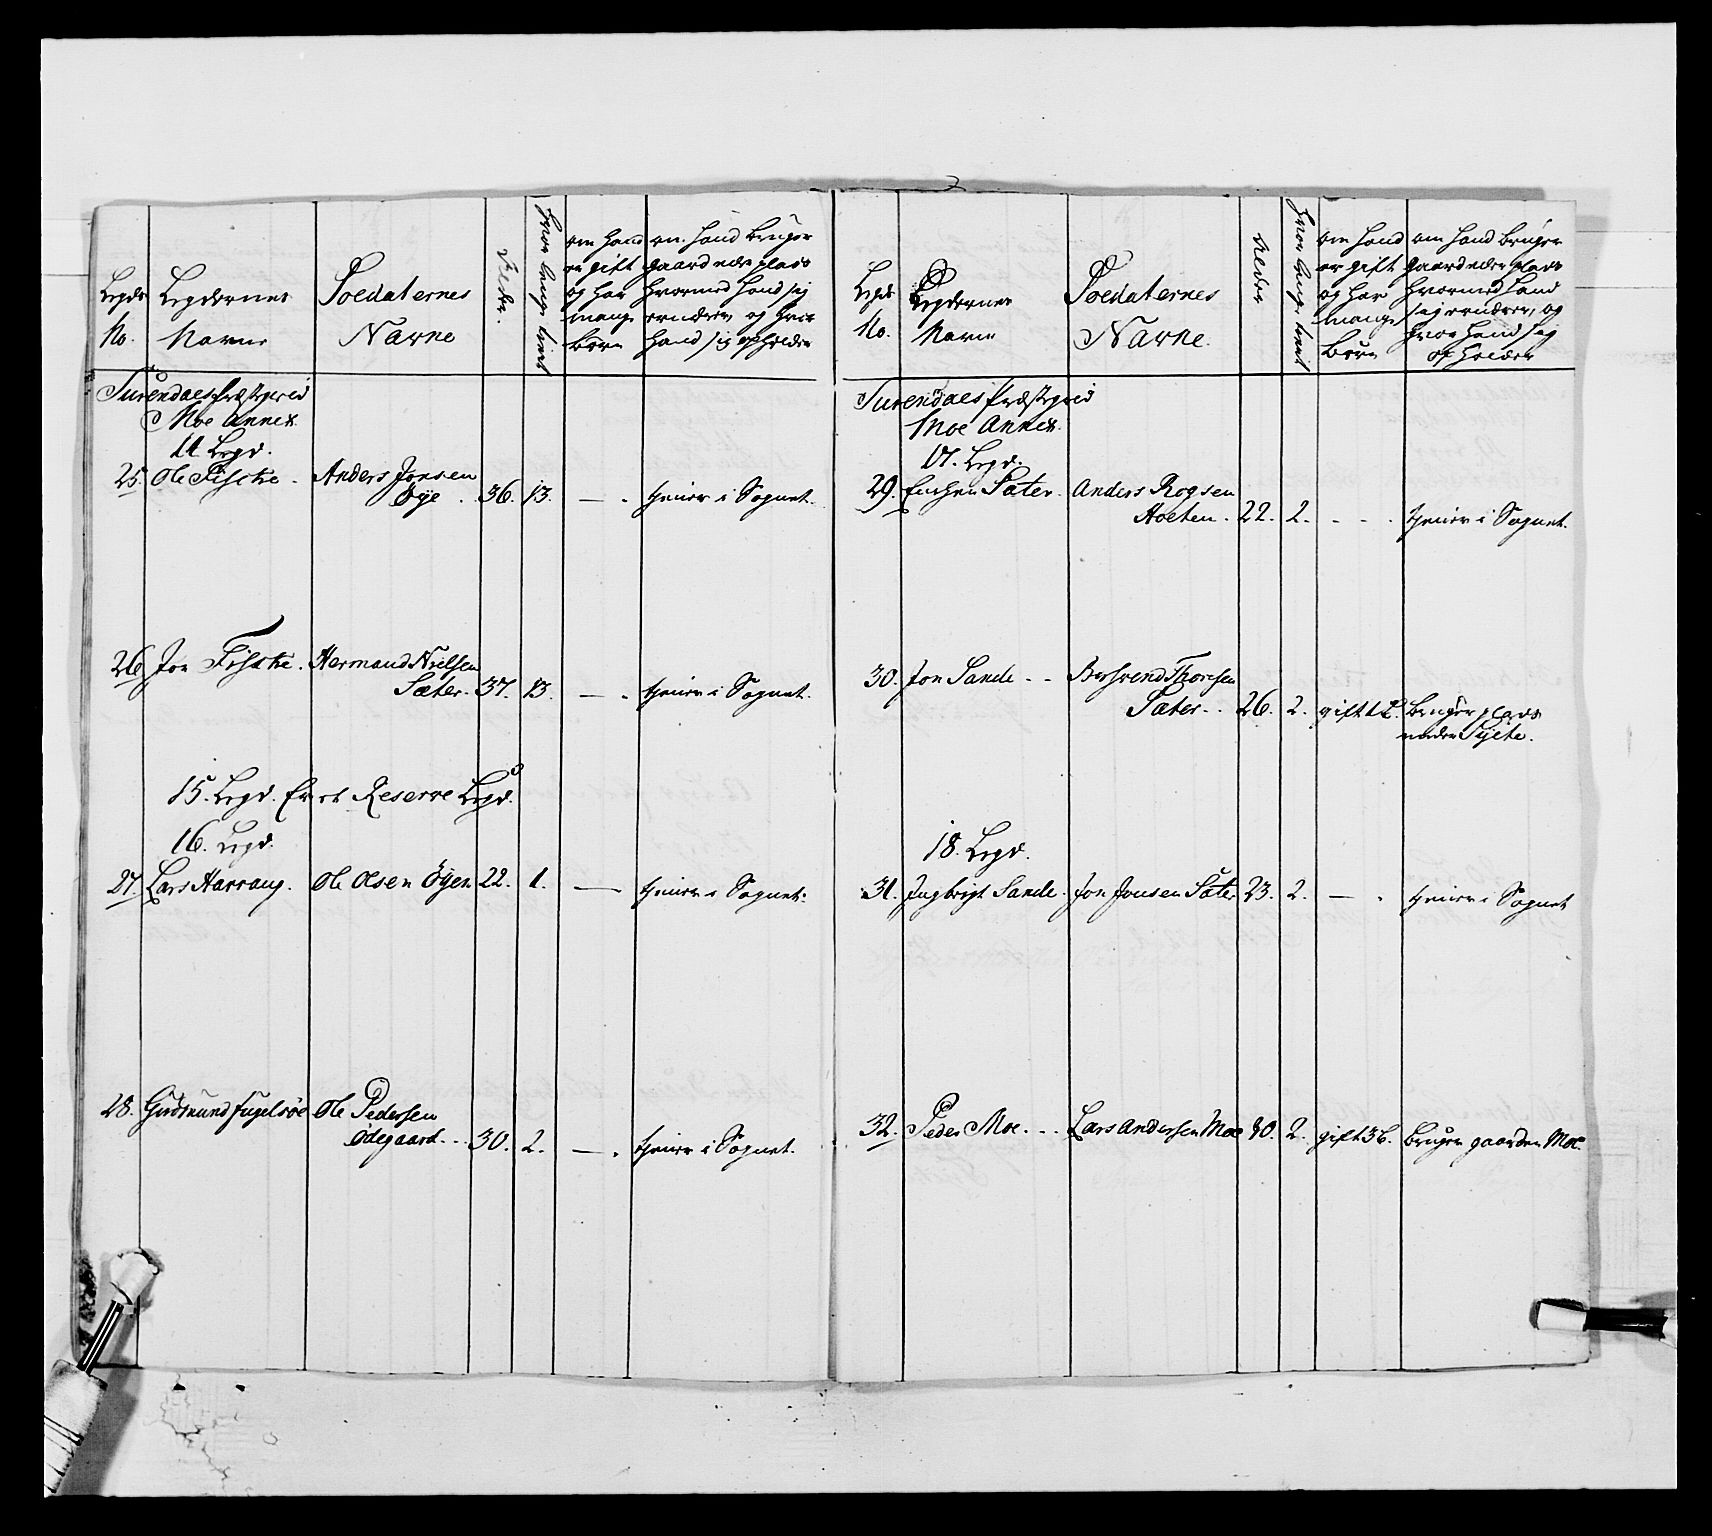 Legds No.
Legdernes Navne
Soldaternes Navne
Alder.
hvor lenge tient
om hand er gift og har mange børn
om hand bruger gaard eller plads hvormed hand sig ernærer og hvor hand sig opholder
Surendals Præstegield
Moe Annex
14 Legd.
25. Ole Fiske. Anders Jonsen
Øye. 36. 13. — . tjener i Sognet.
26 Jon Fiske. Hermand Nielsen
Sæter. 37. 13. — . tjener i Sognet.
15. Legd. Er et Reserve Legd.
16. Legd.
27. Lars Harrang. Ole Olsen Øyen 22. 1. — tjener i Sognet.
28. Gudmund Fugelsøe Ole Pedersen
Ødegaard. . . 30. 2. — . tjener i Sognet.
Legds No.
Legdernes Navne
Soldaternes Navne.
Alder
hvor lenge tient
om hand er gift og har mange Børn
om hand bruger gaard eller plads hvormed hand sig ernærer, og hvor hand sig opholder
Surendals Præstegield
Moe Annex.
17. Legd.
29. Sæter. Anders Rogsen
Holten. 22. 2. . . . tjener i Sognet.
30. Jon Sande . . Bersvend Thoresen
Sæter. . 26. 2. gift 1 B. bruger plads
under
18. Legd.
31. Ingbrigt Sande. Jon Jonsen Sæter 23. 2. — . tjener i Sognet
32. Peder Moe. . . Lars Andersen Moe 30. 2. gift 3 b. bruger gaarden Moe.